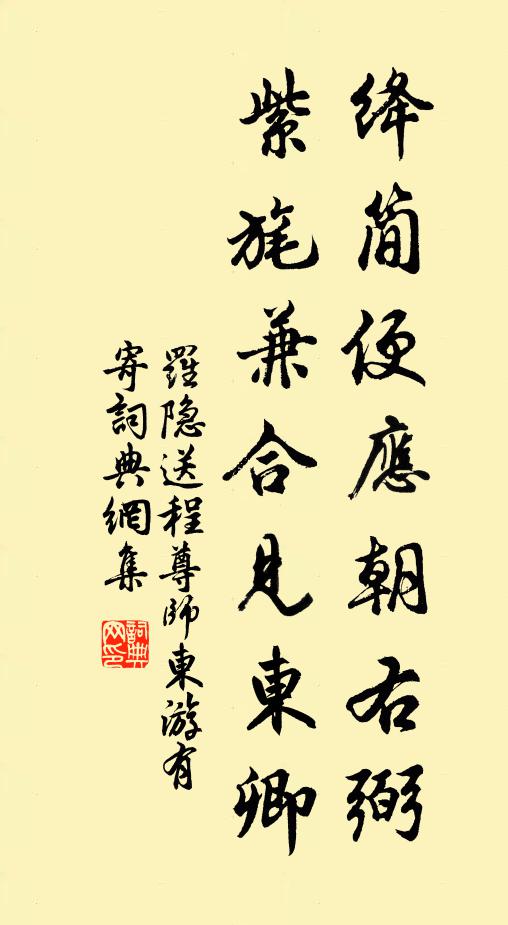 绛简便應朝右弼
紫旄兼合見東卿
羅隐送程尊師東游有
寄詞典網集
詞典
网印